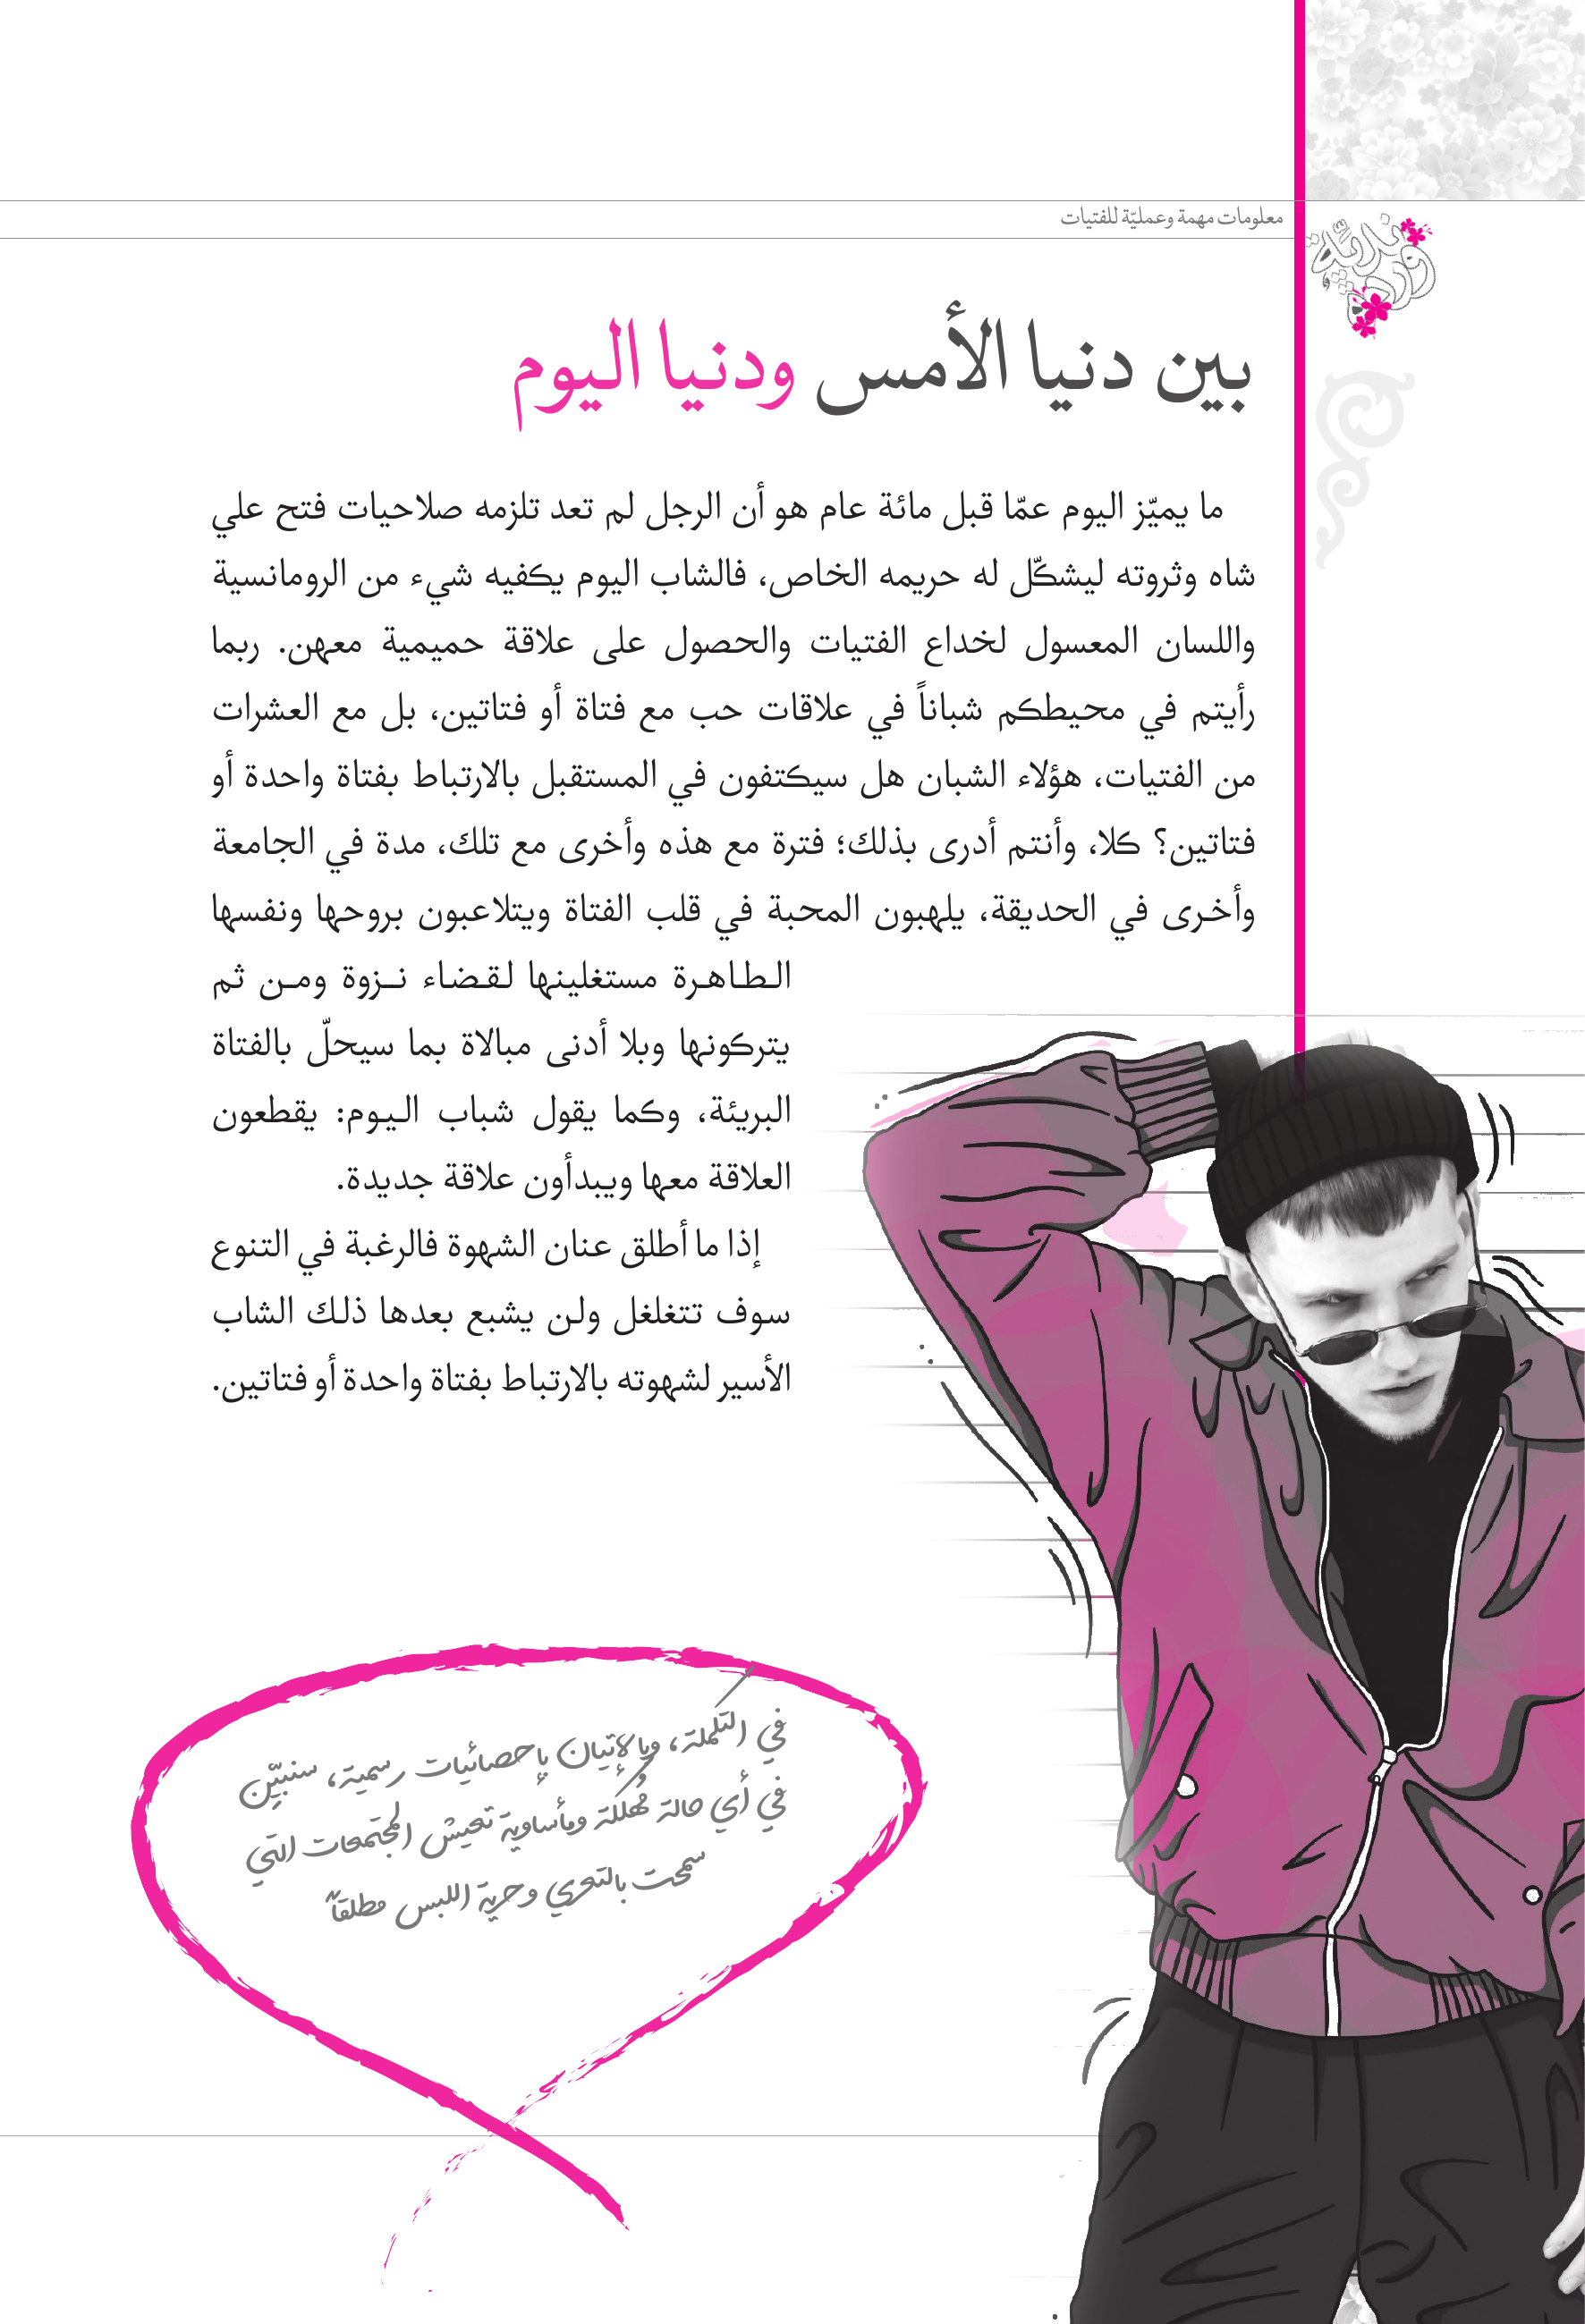 معلومات مهمة وعمليّة للفتيات
وردة نديّة
بين دنيا الأمس ودنيا اليوم
ما يميّز اليوم عمّا قبل مائة عام هو أن الرجل لم تعد تلزمه صلاحيات فتح علي
شاه وثروته ليشكّل له حريمه الخاص، فالشاب اليوم يكفيه شيء من الرومانسية
واللسان المعسول لخداع الفتيات والحصول على علاقة حميمية معهن. ربما
رأيتم في محيطكم شباناً في علاقات حب مع فتاة أو فتاتين، بل مع العشرات
من الفتيات، هؤلاء الشبان هل سيكتفون في المستقبل بالارتباط بفتاة واحدة أو
فتاتين؟ كلا، وأنتم أدرى بذلك؛ فترة مع هذه وأخرى مع تلك، مدة في الجامعة
وأخرى في الحديقة، يلهبون المحبة في قلب الفتاة ويتلاعبون بروحها ونفسها
الطاهرة مستغلينها لقضاء نزوة ومن ثم
يتركونها وبلا أدنى مبالاة بما سيحلّ بالفتاة
البريئة، وكما يقول شباب اليوم: يقطعون
العلاقة معها ويبدأون علاقة جديدة.
إذا ما أطلق عنان الشهوة فالرغبة في التنوع
سوف تتغلغل ولن يشبع بعدها ذلك الشاب
الأسير لشهوته بالارتباط بفتاة واحدة أو فتاتين.
في التكملة، وبالإتيان بإحصائيات رسمية، سنبيّن
في أي حالة مُهلكة ومأساوية تعيش المجتمعات التي
سمحت بالتعري وحرية اللبس مطلقاً